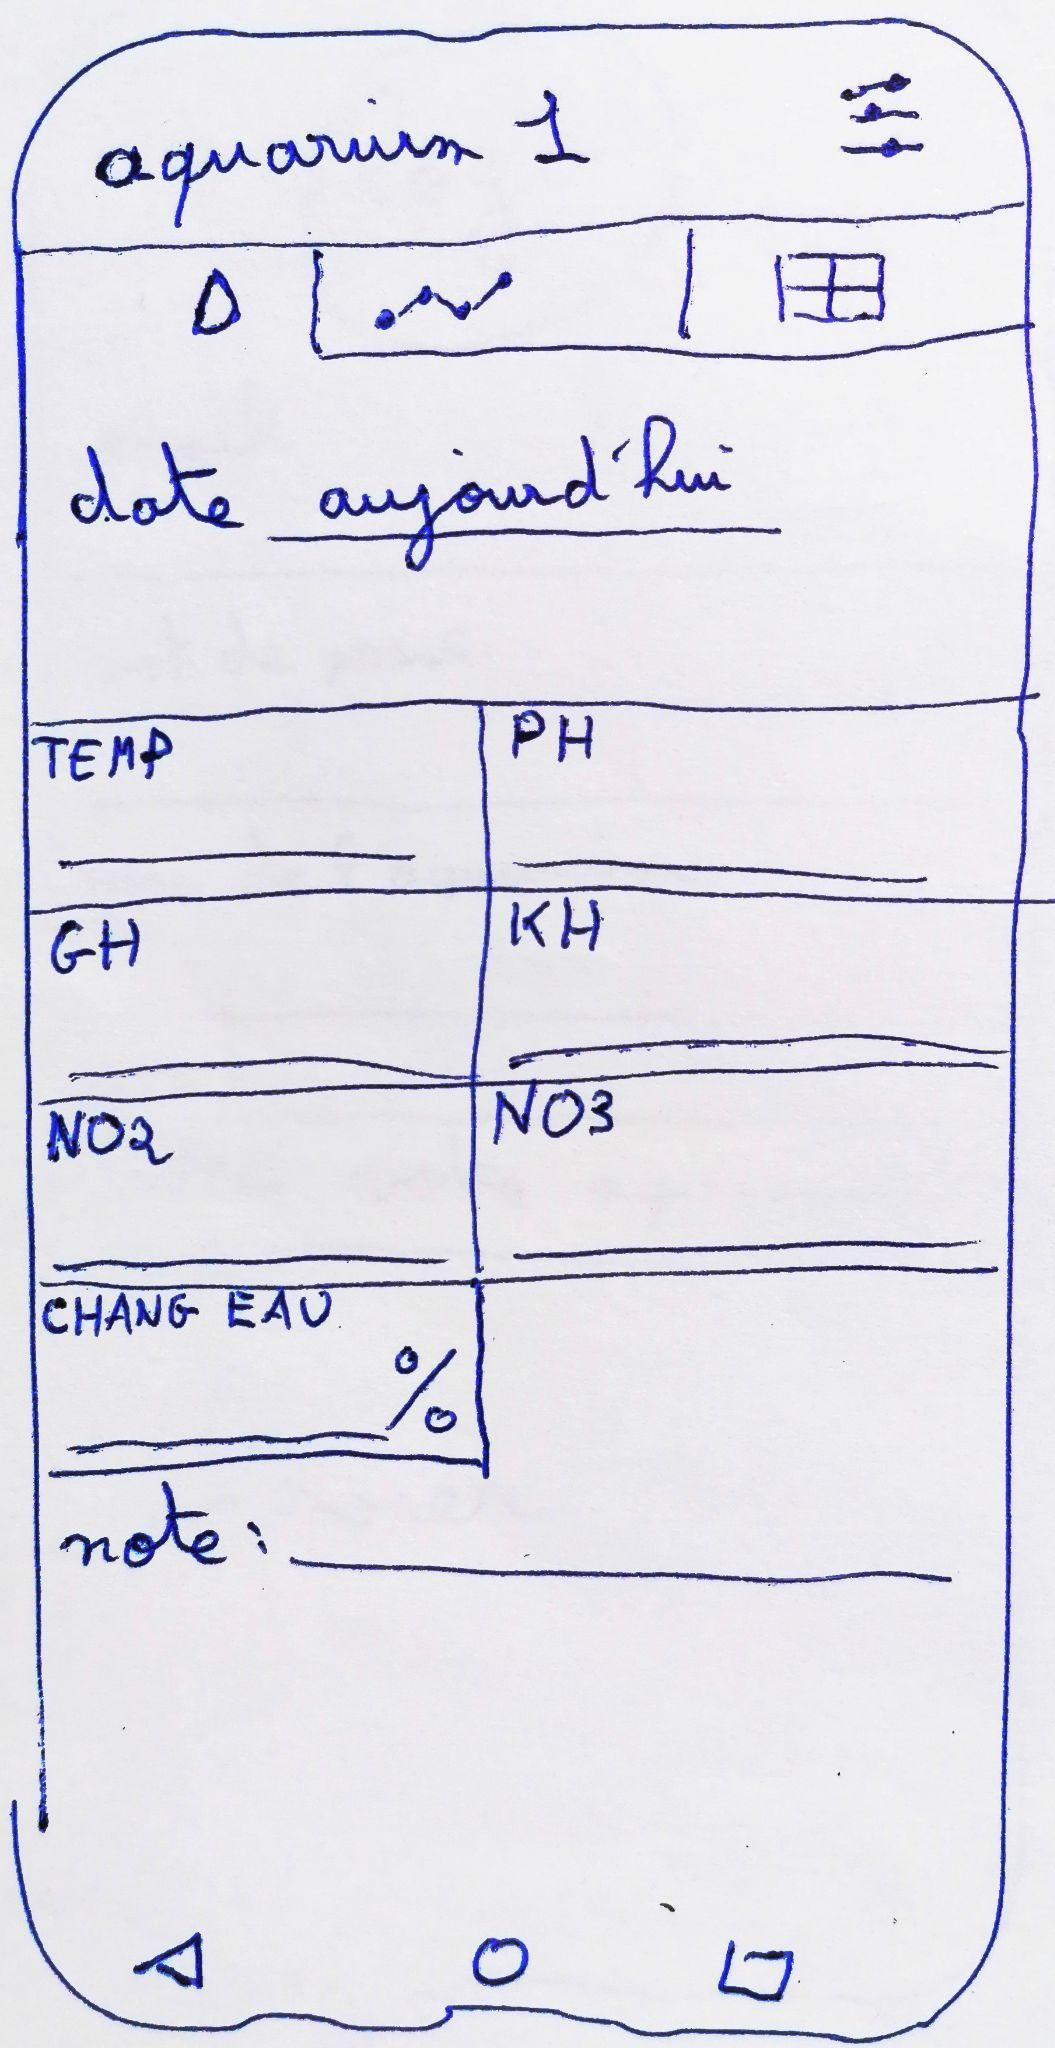 aquarium 1
date aujourd'hui
TEMP PH
GH KH
NO2 NO3
CHANG EAU
%
note: